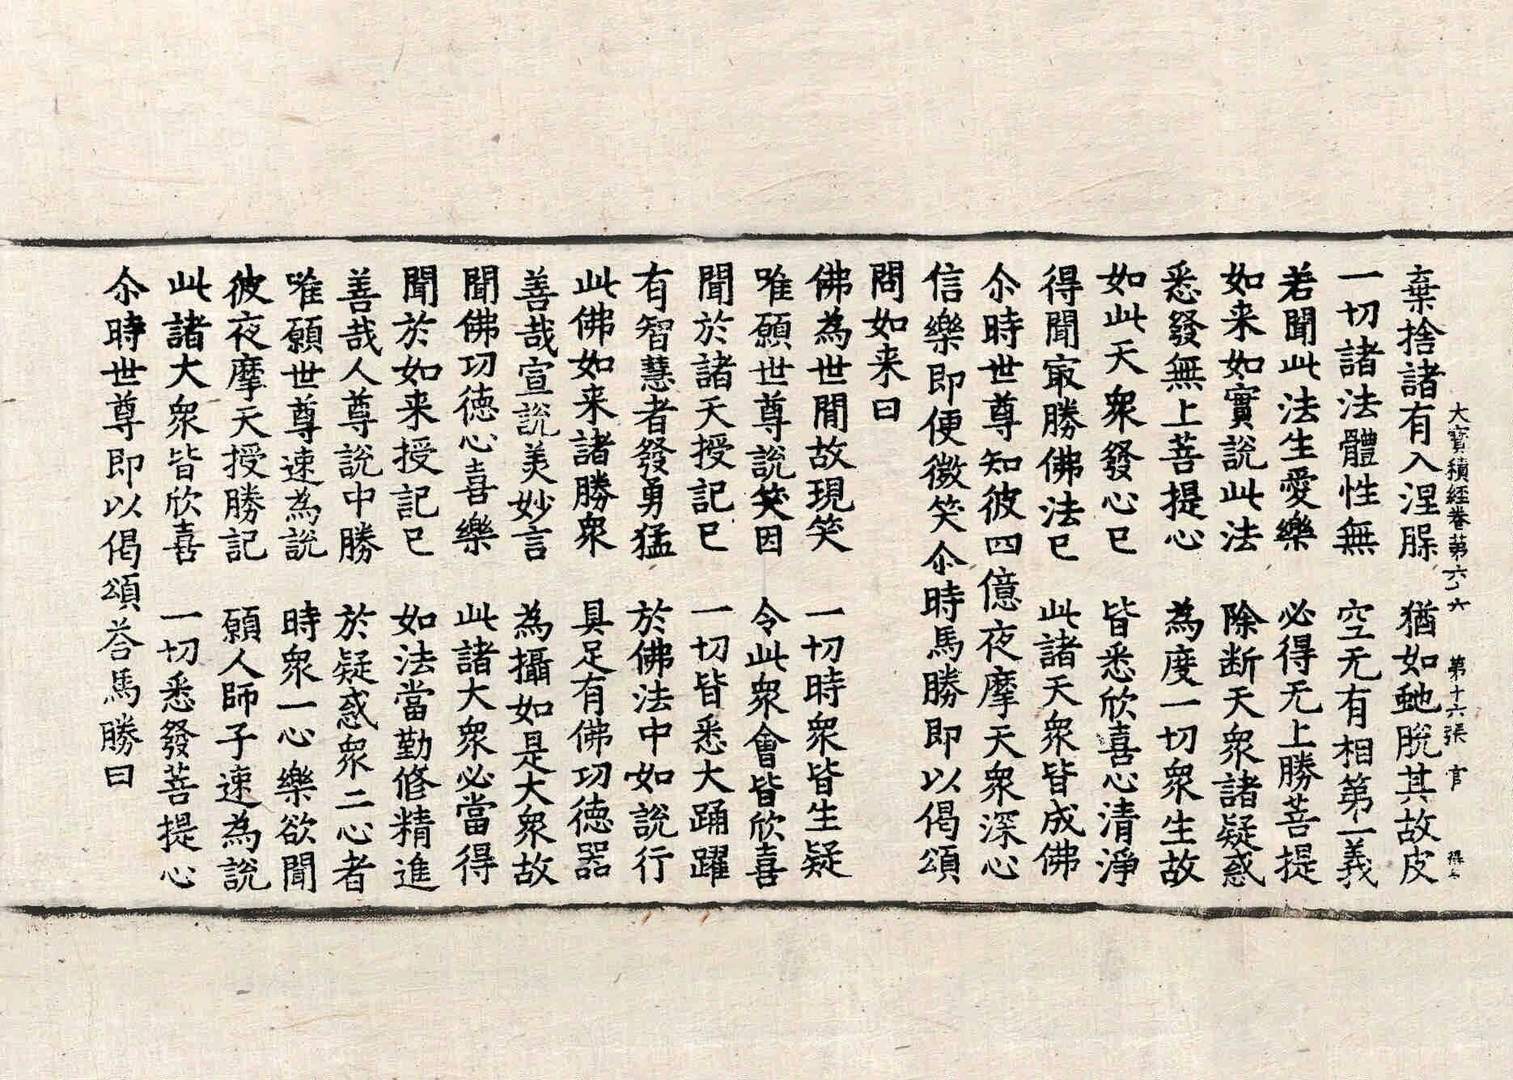 大寶積經卷第六六 第十六張 官
棄捨諸有入涅槃 猶如虵脫其故皮
一切諸法體性無 空无有相第一義
若聞此法生愛樂 必得无上勝菩提
如来如實說此法 除断天衆諸疑惑
悉發無上菩提心 為度一切衆生故
如此天衆發心已 皆悉欣喜心清淨
得聞寂勝佛法已 此諸天衆皆成佛
尒時世尊知彼四億夜摩天衆深心
信樂即便微笑尒時馬勝即以偈頌
問如来曰
佛為世閒故現笑 一切時衆皆生疑
唯願世尊說笑因 令此衆會皆欣喜
聞於諸天授記已 一切皆悉大踊躍
有智慧者發勇猛 於佛法中如說行
此佛如来諸勝衆 具足有佛功德器
善哉宣說美妙言 為攝如是大衆故
聞佛功德心喜樂 此諸大衆必當得
聞於如来授記已 如法當勤修精進
善哉人尊說中勝 於疑惑衆二心者
唯願世尊速為說 時衆一心樂欲聞
彼夜摩天授勝記 願人師子速為說
此諸大衆皆欣喜 一切悉發菩提心
尒時世尊即以偈頌荅馬勝曰